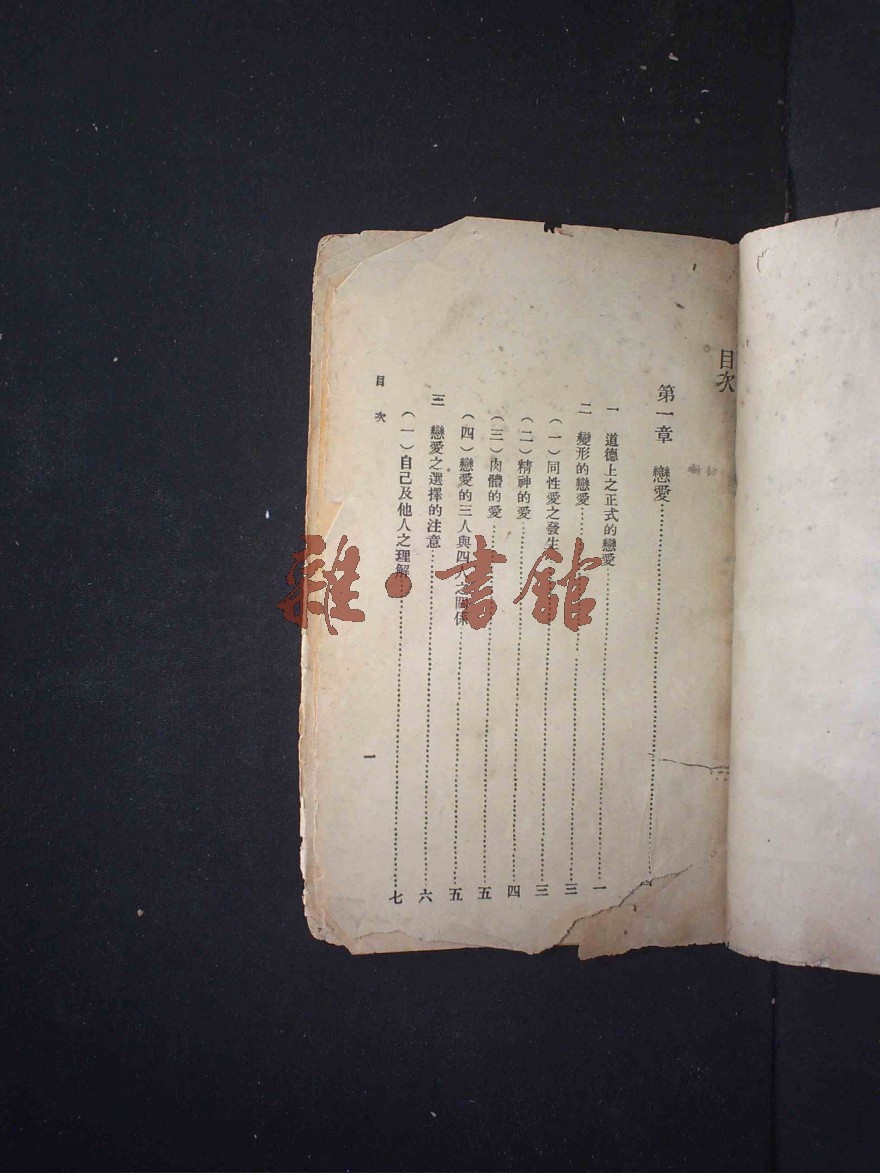 目次
第一章 戀愛
一 道德上之正式的戀愛 一
二 變形的戀愛 三
(一)同性愛之發生 三
(二)精神的愛 四
(三)肉體的愛 五
(四)戀愛的三人與四人之關係 五
三 戀愛之選擇的注意 六
(一)自己及他人之理解 七
目次
一
雜·書館